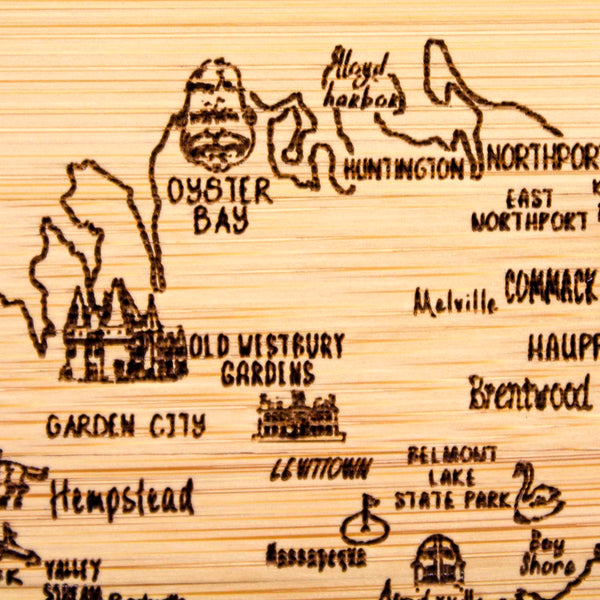 Lloyd
harbor
HUNTINGTON
NORTHPORT
EAST
NORTHPORT
OYSTER
BAY
Melville
COMMACK
HAUPP
OLD WESTBURY
GARDENS
Brentwood
GARDEN CITY
LEWTTOWN
BELMONT
LAKE
STATE PARK
Hempstead
Massapequa
Bay
Shore
VALLEY
STREAM
K